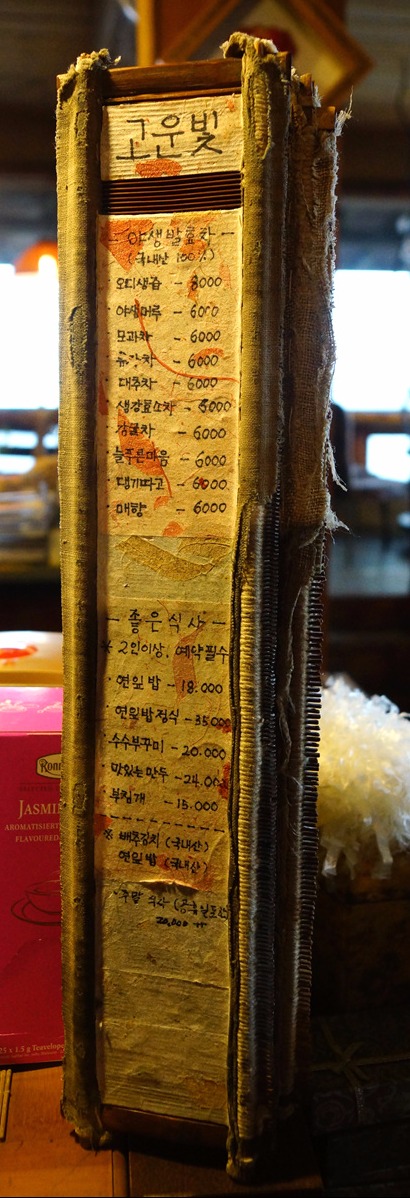 고운빛
- 야생발효차 -
(국내산 100%)
· 오디생즙 - 8000
· 야생머루 - 6000
· 모과차 - 6000
· 유자차 - 6000
· 대추차 - 6000
· 생강효소차 - 6000
- 6000
· 늘푸른마음 - 6000
· 댕기따고 - 6000
· 매향 - 6000
- 좋은식사 -
※ 2인이상, 예약필수
· 연잎밥 - 18.000
· 연잎밥정식 - 35.000
· 수수부꾸미 - 20.000
· 맛있는만두 - 24.000
· 부침개 - 15.000
※ 배추김치 (국내산)
연잎밥 (국내산)
20,000
Ronn
JASMI
AROMATISIERT
FLAVOURED
25 x 1.5 g Teavelope